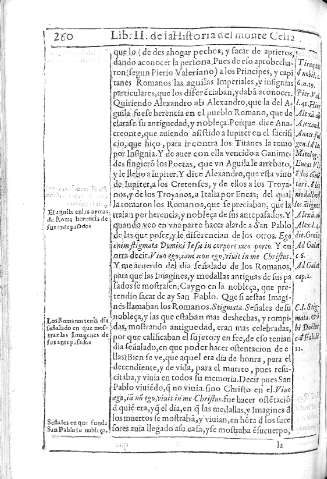 260 Lib. II. de la Historia del monte Celia
que lo (de des ahogar pechos, y sacar de aprietos,
dando aconocer la persona. Pues de eso aprobecha-
ron (segun Pierio Valeriano) a los Principes, y capi
tanes Romanos las aguilas Imperiales, y insignias
particulares, que los diferenciaban, y daban aconocer.
Quiriendo Alexandro ab Alexandro, que la del A-
guila fuese herencia en el pueblo Romano, que de
clarase su antiguedad, y nobleça. Porque dice Ana-
creonte, que auiendo asistido a Iupiter en el sacrifi
cio, que hiço, para ir contra los Titanes la tomo
por Insignia. Y de auer con ella vencido a Ganime-
des fingieron los Poetas, que vn Aguila le arrebato,
y le llebo a Iupiter. Y dice Alexandro, que esta vino
de Iupiter, a los Cretenses, y de ellos a los Troya-
nos, y de los Troyanos, a Italia por Eneas, del qual
la tomaron los Romanos, que se preciaban, que la
traian por herencia, y nobleça de sus antepasados. Y
quando veo en vna parte hacer alarde a San Pablo
de las que posee, y le diferencian de los otros. Ego
enim stigmata Domini Iesu in corpore meo porto. Y en
otra decir. Viuo ego, iam non ego, viuit in me Christus.
Y me acuerdo del dia señalado de los Romanos,
para que las Imagines, y medallas antiguas de sus pa
sados se mostrasen. Caygo en la nobleça, que pre-
tendio sacar de ay San Pablo. Que si a estas Imagi-
nes llamaban los Romanos. Stigmata. Señales de su
nobleça, y las que estaban mas deshechas, y rompi-
das, mostrando antiguedad, eran mas celebradas,
por que calificaban el ser y torre en fee, de eso tenian
dia señalado, en que poder hacer ostentacion de e-
llas. Bien se ve, que aquel era dia de honra, para el
decendiente, y de vida, para el muerto, pues resu-
citaba, y viuia en todos su memoria. Decir pues San
Pablo viuiendo, q no viuia, sino Christo en el. Viuo
ego, iã nõ ego, viuit in me Christus. fue hacer ostẽtació
d quiẽ era, y q̃ el dia, en q̃ las medallas, y Imagines d
los muertos se mostraba, y viuian, en hõra d los suce
sores auia llegado a su casa, y se mostraba ẽ su cuerpo,
la
El aquila en las armas
de Roma herencia de
sus antepasados
Los Romanos tenian dia
señalado en que mos-
trar las Imagines de
sus antepasados.
Señales en que funda
San Pablo su nobleça.
Ad Galat
c. 6.
Ad Galat
cap. 2.